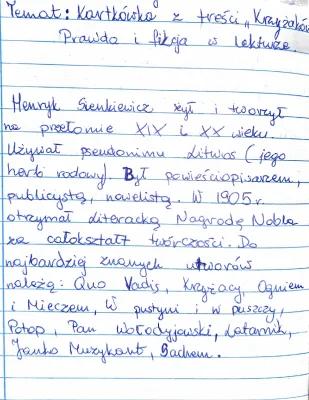 Temat: Kartkówka z treści „Krzyżaków
Prawda i fikcja w lekturze
Henryk Sienkiewicz żył i tworzył
na przełomie XIX i XX wieku.
Używał pseudonimu Litwos (jego
herb rodowy). Był powieściopisarzem,
publicystą, nowelistą. W 1905r.
otrzymał Literacką Nagrodę Nobla
za całokształt twórczości. Do
najbardziej znanych utworów
należą: Quo Vadis, Krzyżacy, Ogniem
i Mieczem, W pustyni i w puszczy,
Potop, Pan Wołodyjowski, Latarnik,
Janko Muzykant, Sachem.